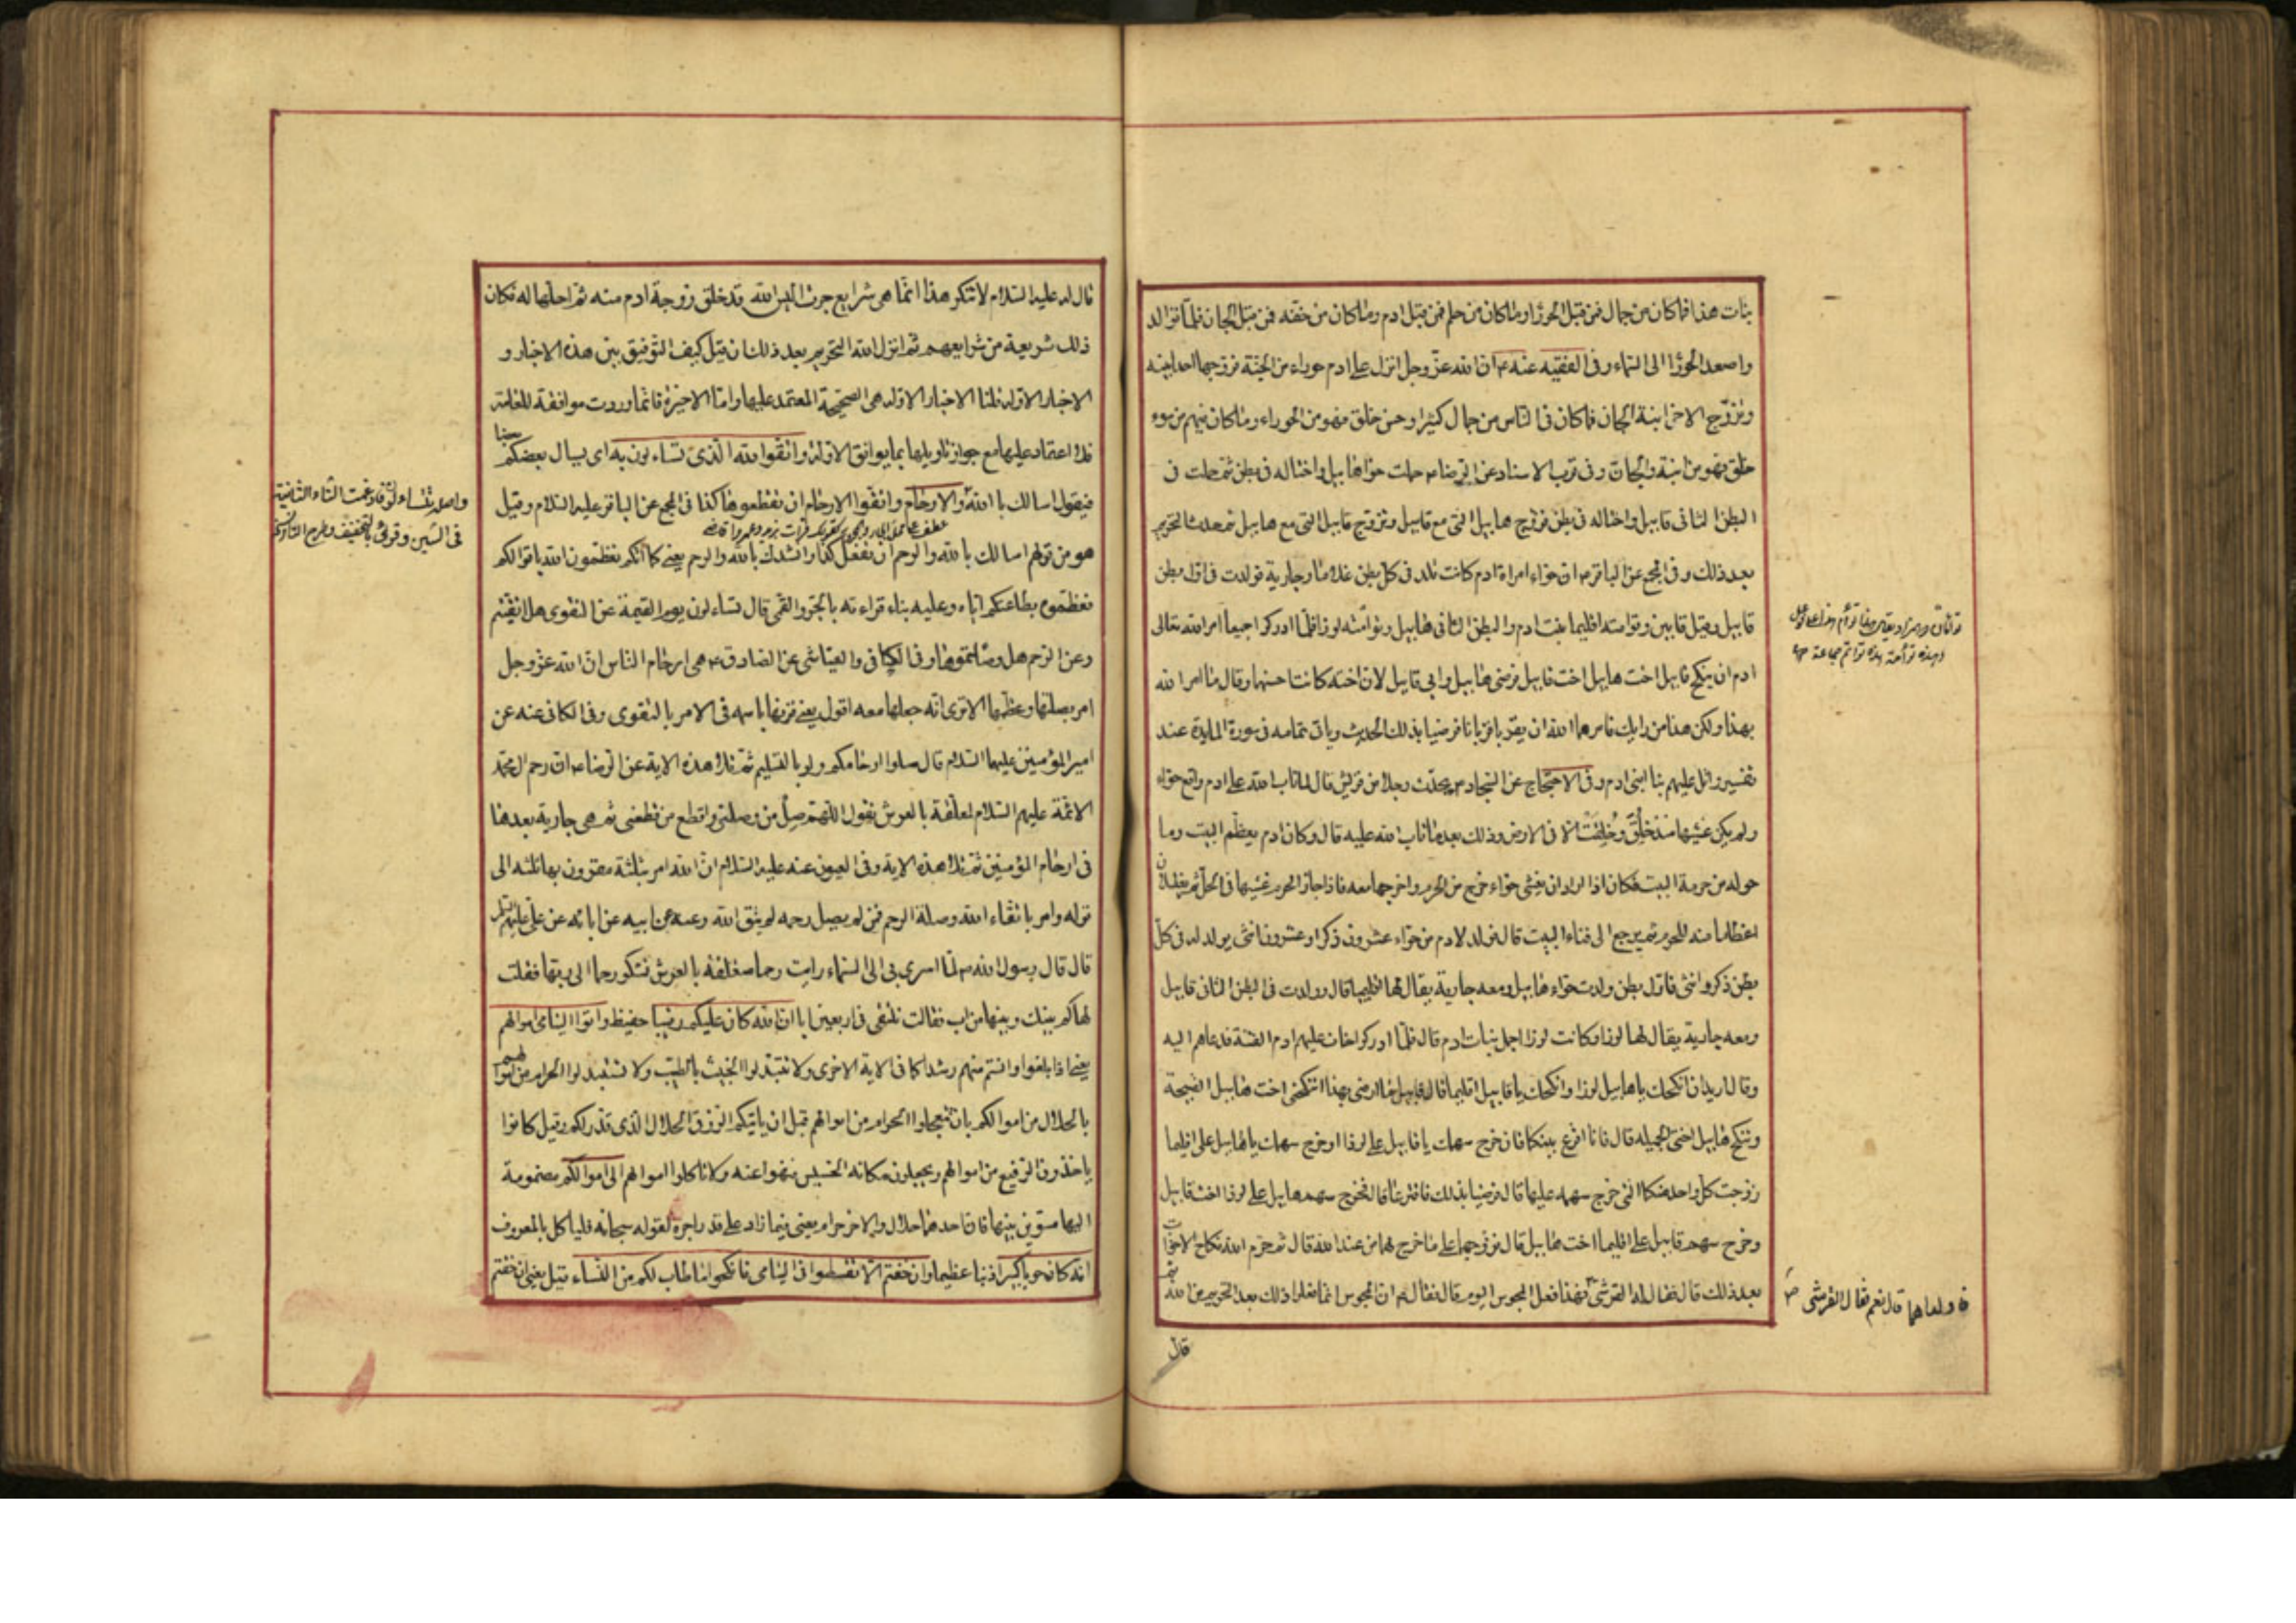 بنات هذا فما كان من جمال فمن قبل الحوراء وما كان من حلم فمن قبل ادم وما كان من خفة فمن قبل الجان فلما توالد
واصعد الحوراء الى السماء وفى الفقيه عنه ع ان الله عز وجل انزل على ادم حوراء من الجنة فزوجها احد ابنيه
وتزوج الاخر ابنة الجان فما كان فى الناس من جمال كثير او حسن خلق فهو من الحوراء وما كان فيهم من سوء
خلق فهو من ابنة والجان وفى قرب الاسناد عن الرضا ع حملت حوا هابيل واختا له فى بطن ثم حملت فى
البطن الثانى قابيل واختا له فى بطن فزوج هابيل التى مع قابيل وتزوج قابيل التى مع هابيل ثم حدث التحريم
بعد ذلك وفى المجمع عن الباقر ع ان حواء امراة ادم كانت تلد فى كل بطن غلاما وجارية فولدت فى اول بطن
قابيل وقيل قابين وتوامته اقليما بنت ادم والبطن الثانى هابيل وتوامته لوزا فلما ادركوا جميعا امر الله تعالى
ادم ان ينكح قابيل اخت هابيل وهابيل اخت قابيل فرضى هابيل وابى قابيل لان اخته كانت احسنهما وقال ما امر الله
بهذا ولكن هذا من رايك فامرهما الله ان يقربا قربانا فرضيا بذلك الحديث وياتى تمامه فى سورة المايدة عند
تفسير واتل عليهم نبا ابنى ادم وفى الاحتجاج عن السجاد ع يحدث رجلا من قريش قال لما تاب الله على ادم واقع حواء
ولم يكن غشيها منذ خلق وخلقت الا فى الارض وذلك بعد ما تاب الله عليه قال وكان ادم يعظم البيت وما
حوله من حرمة البيت فكان اذا اراد ان يغشى حواء خرج من الحرم واخرجها معه فاذا جاز الحرم غشيها فى الحل ثم يغتسلان
اعظاما منه للحرم ثم يرجع الى فناء البيت قال فولد لادم من حواء عشرون ذكرا وعشرون انثى يولد له فى كل
بطن ذكر وانثى فاول بطن ولدت حواء هابيل ومعه جارية يقال لها اقليما قال وولدت فى البطن الثانى قابيل
ومعه جارية يقال لها لوزا وكانت لوزا اجمل بنات ادم قال فلما ادركوا خاف عليهم ادم الفتنة فدعاهم اليه
وقال اريد ان انكحك يا هابيل لوزا وانكحك يا قابيل اقليما قال قابيل ما ارضى بهذا اتنكحنى اخت هابيل القبيحة
وتنكح هابيل اختى الجميلة قال فانا اقرع بينكما فان خرج سهمك يا قابيل على لوزا او خرج سهمك يا هابيل على اقليما
زوجت كل واحد منكما التى خرج سهمه عليها قال فرضيا بذلك فاقترعا قال فخرج سهم هابيل على لوزا اخت قابيل
وخرج سهم قابيل على اقليما اخت هابيل قال فزوجهما على ما خرج لهما من عند الله قال ثم حرم الله نكاح الاخوات
بعد ذلك قال فقال له القرشى فهذا فعل المجوس اليوم قال فقال ان المجوس انما فعلوا ذلك بعد التحريم من الله
فاولداهما قال نعم فقال القرشى
قال
قال له عليه السلام لا تنكر هذا انما هى شرايع جرت اليس الله قد خلق زوجة ادم منه ثم احلها له فكان
ذلك شريعة من شرايعهم ثم انزل الله التحريم بعد ذلك فان قيل كيف التوفيق بين هذه الاخبار و
الاخبار الاولة قلنا الاخبار الاولة هى الصحيحة المعتمد عليها واما الاخيرة فانما وردت موافقة للعامة
فلا اعتماد عليها مع جواز تاويلها بما يوافق الاولة واتقوا الله الذى تساءلون به اى يسال بعضكم بعضا
فيقول اسالك بالله والارحام واتقوا الارحام ان تقطعوها كذا فى المجمع عن الباقر عليه السلام وقيل
هو من قولهم اسالك بالله والرحم ان تفعل كذا وانشدك بالله والرحم يعنى كما انكم تعظمون الله باقوالكم
فعظموه بطاعتكم اياه وعليه بناء قراءته بالجر والقمى قال تساءلون يوم القيمة عن التقوى هل اتقيتم
وعن الرحم هل وصلتموها وفى الكافى والعياشى عن الصادق ع هى ارحام الناس ان الله عز وجل
امر بصلتها وعظمها الا ترى انه جعلها معه اقول يعنى قرنها باسمه فى الامر بالتقوى وفى الكافى عنه عن
امير المؤمنين عليهما السلام قال صلوا ارحامكم ولو بالتسليم ثم تلا هذه الاية عن الرضا ع ان رحم ال محمد
الائمة عليهم السلام لمعلقة بالعرش تقول اللهم صل من وصلنى واقطع من قطعنى ثم هى جارية بعدها
فى ارحام المؤمنين ثم تلا هذه الاية وفى العيون عنه عليه السلام ان الله امر بثلثة مقرون بها ثلثة الى
قوله وامر باتقاء الله وصلة الرحم فمن لم يصل رحمه لم يتق الله وعنه عن ابيه عن ابائه عن على عليهم السلم
قال قال رسول الله ص لما اسرى بى الى السماء رايت رحما متعلقة بالعرش تشكو رحما الى ربها فقلت
لها كم بينك وبينها من اب فقالت نلتقى فى اربعين ابا ان الله كان عليكم رقيبا حفيظا واتوا اليتامى اموالهم
يعنى اذا بلغوا وانستم منهم رشدا كما فى الاية الاخرى ولا تتبدلوا الخبيث بالطيب ولا تستبدلوا الحرام من اموالهم
بالحلال من اموالكم بان تتعجلوا الحرام من اموالهم قبل ان ياتيكم الرزق الحلال الذى قدر لكم وقيل كانوا
ياخذون الرفيع من اموالهم ويجعلون مكانه الخسيس فنهوا عنه ولا تاكلوا اموالهم الى اموالكم مضمومة
اليها مسوين بينهما فان احدهما حلال والاخر حرام يعنى فيما زاد على قدر اجره لقوله سبحانه فلياكل بالمعروف
انه كان حوبا كبيرا ذنبا عظيما وان خفتم الا تقسطوا فى اليتامى فانكحوا ما طاب لكم من النساء قيل يعنى ان خفتم
واصله تتساءلون فادغمت التاء الثانية
فى السين وقرئ بالتخفيف وطرح التاء